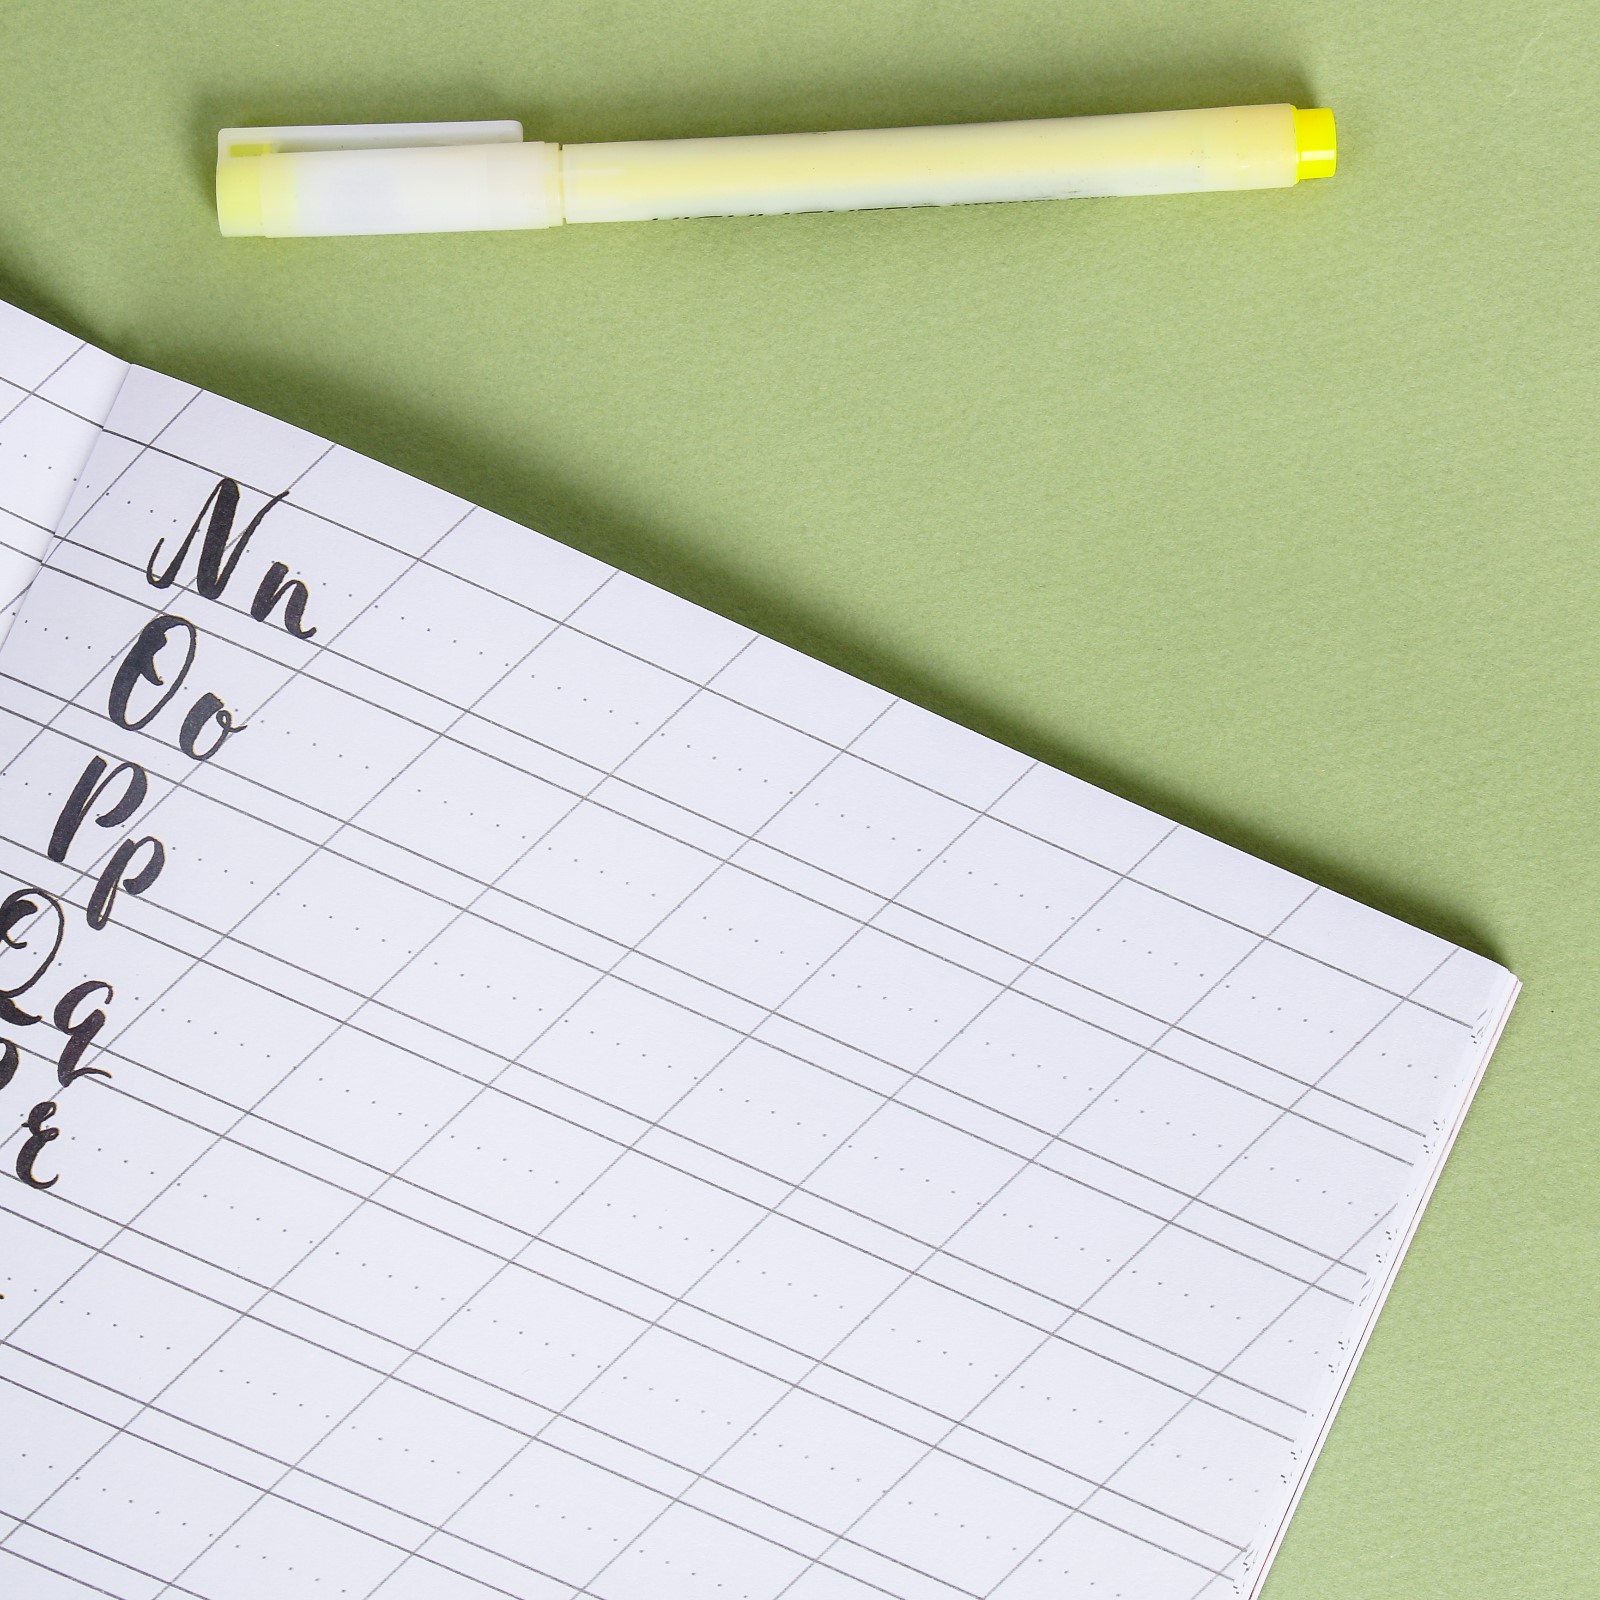 Nn
Oo
Pp
Qq